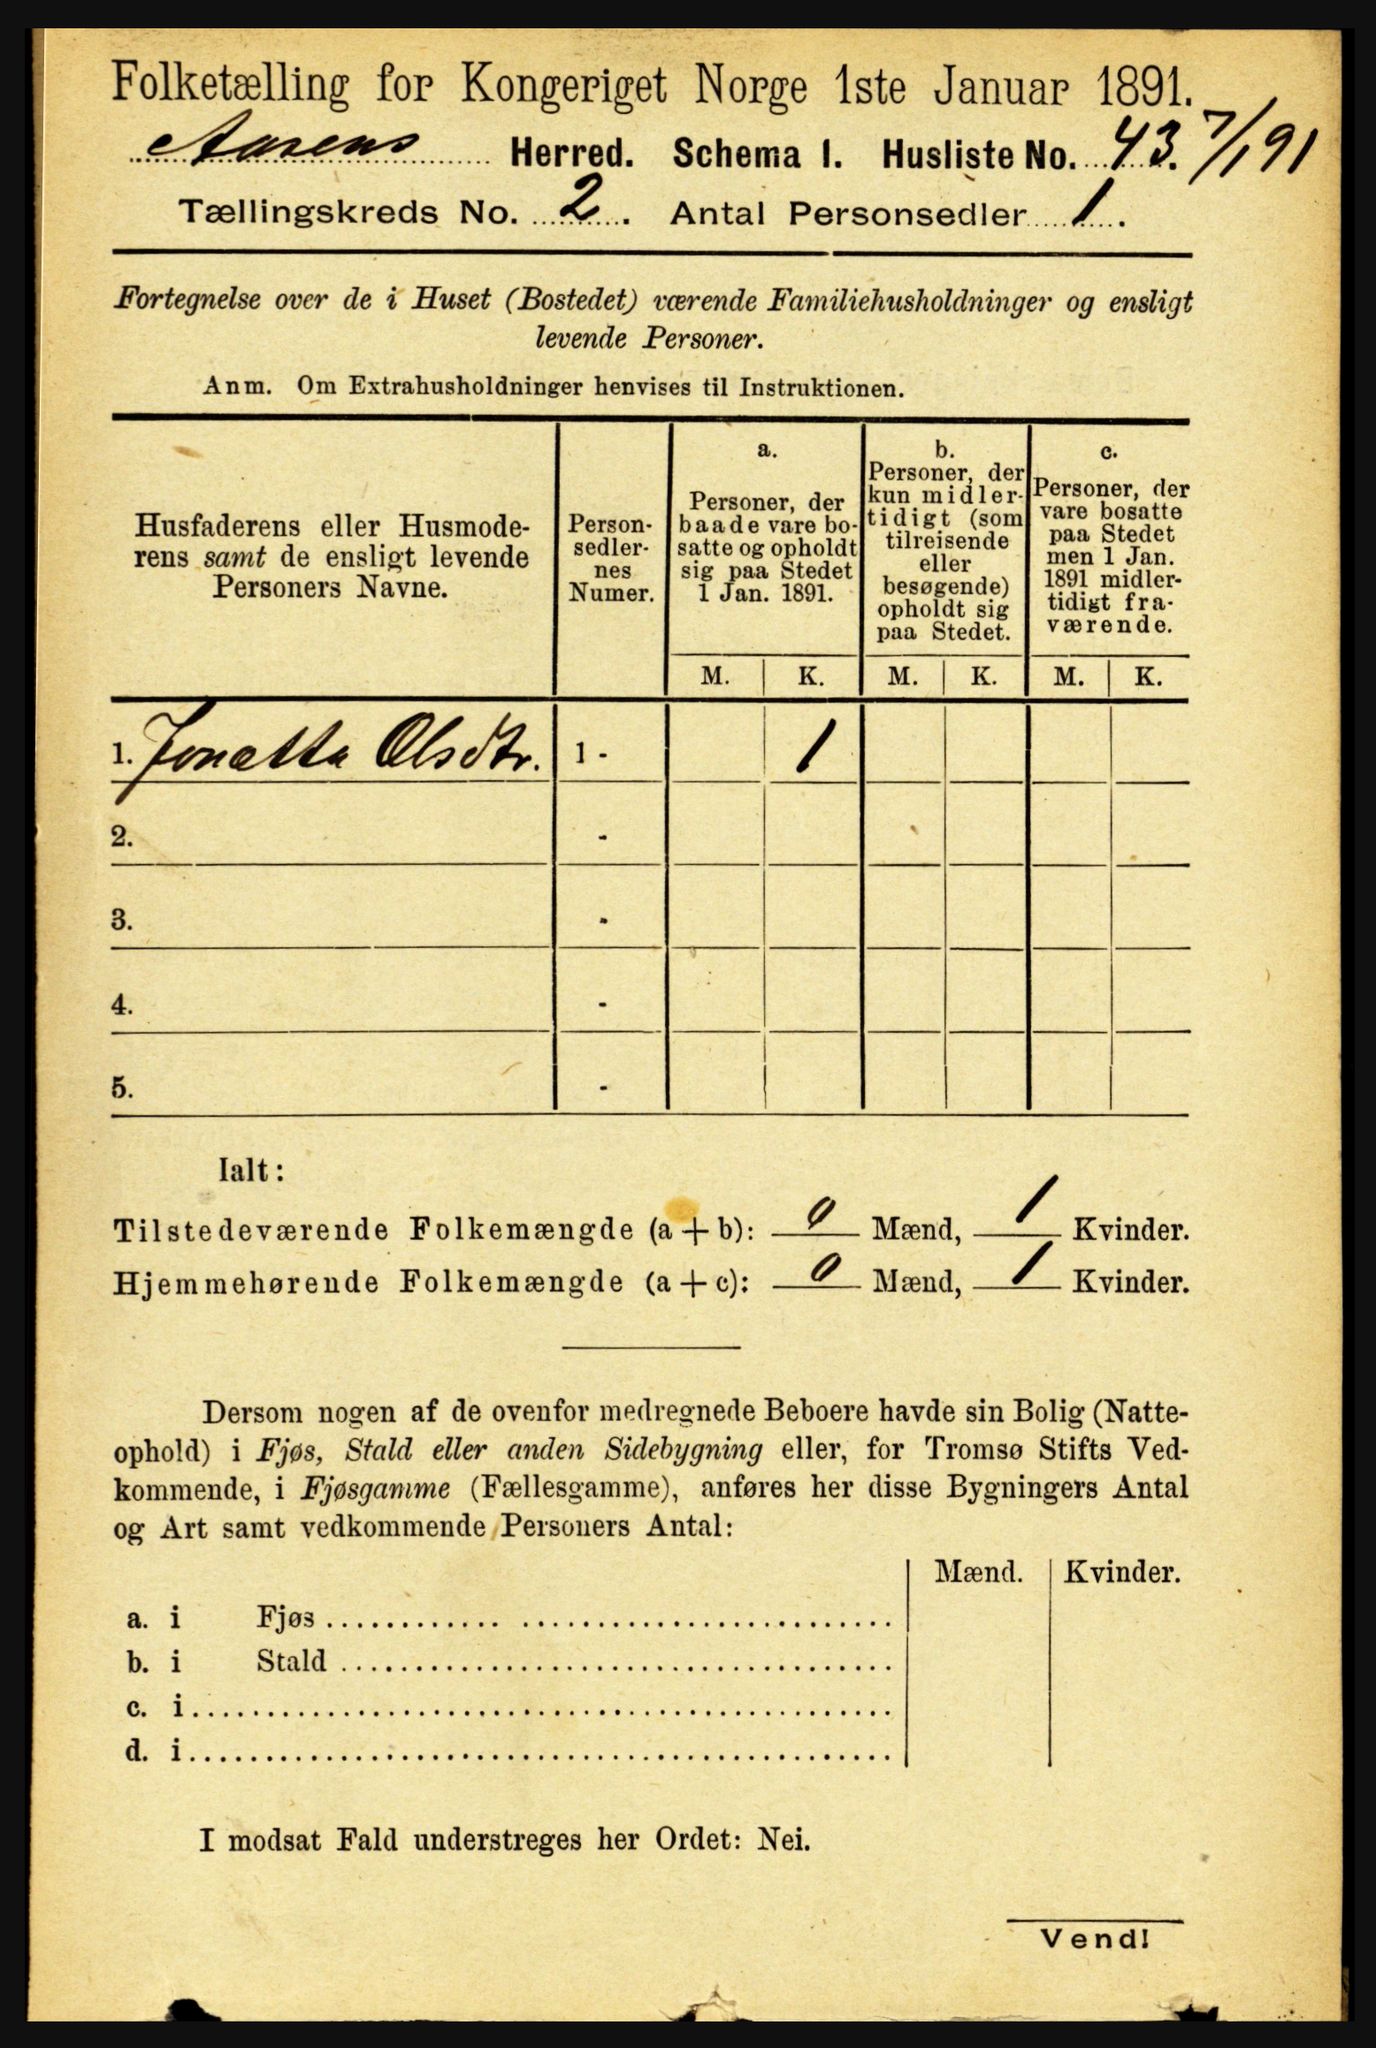 Folketælling for Kongeriget Norge 1ste Januar 1891.
Aurens Herred. Schema 1. Husliste No. 43. 7/1 91
Tællingskreds No. 2. Antal Personsedler 1.
Fortegnelse over de i Huset (Bostedet) værende Familiehusholdninger og ensligt
levende Personer.
Anm. Om Extrahusholdninger henvises til Instruktionen.
Husfaderens eller Husmode-
rens samt de ensligt levende
Personers Navne.
Person-
sedler-
nes
Numer.
a.
Personer, der
baade vare bo-
satte og opholdt
sig paa Stedet
1 Jan. 1891.
b.
Personer, der
kun midler-
tidigt (som
tilreisende
eller
besøgende)
opholdt sig
paa Stedet.
c.
Personer, der
vare bosatte
paa Stedet
men 1 Jan.
1891 midler-
tidigt fra-
værende.
M. K. M. K. M. K.
1. Jonetta Olsdtr. 1 - 1
2. -
3. -
4. -
5. -
Ialt:
Tilstedeværende Folkemængde (a + b): 0 Mænd, 1 Kvinder.
Hjemmehørende Folkemængde (a + c): 0 Mænd, 1 Kvinder.
Dersom nogen af de ovenfor medregnede Beboere havde sin Bolig (Natte-
ophold) i Fjøs, Stald eller anden Sidebygning eller, for Tromsø Stifts Ved-
kommende, i Fjøsgamme (Fællesgamme), anføres her disse Bygningers Antal
og Art samt vedkommende Personers Antal:
Mænd. Kvinder.
a. i Fjøs
b. i Stald
c. i
d. i
I modsat Fald understreges her Ordet: Nei.
Vend!